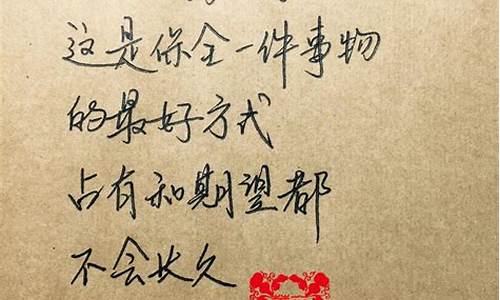 这是保全一件事物
的最好方式
占有和期望都
不会长久